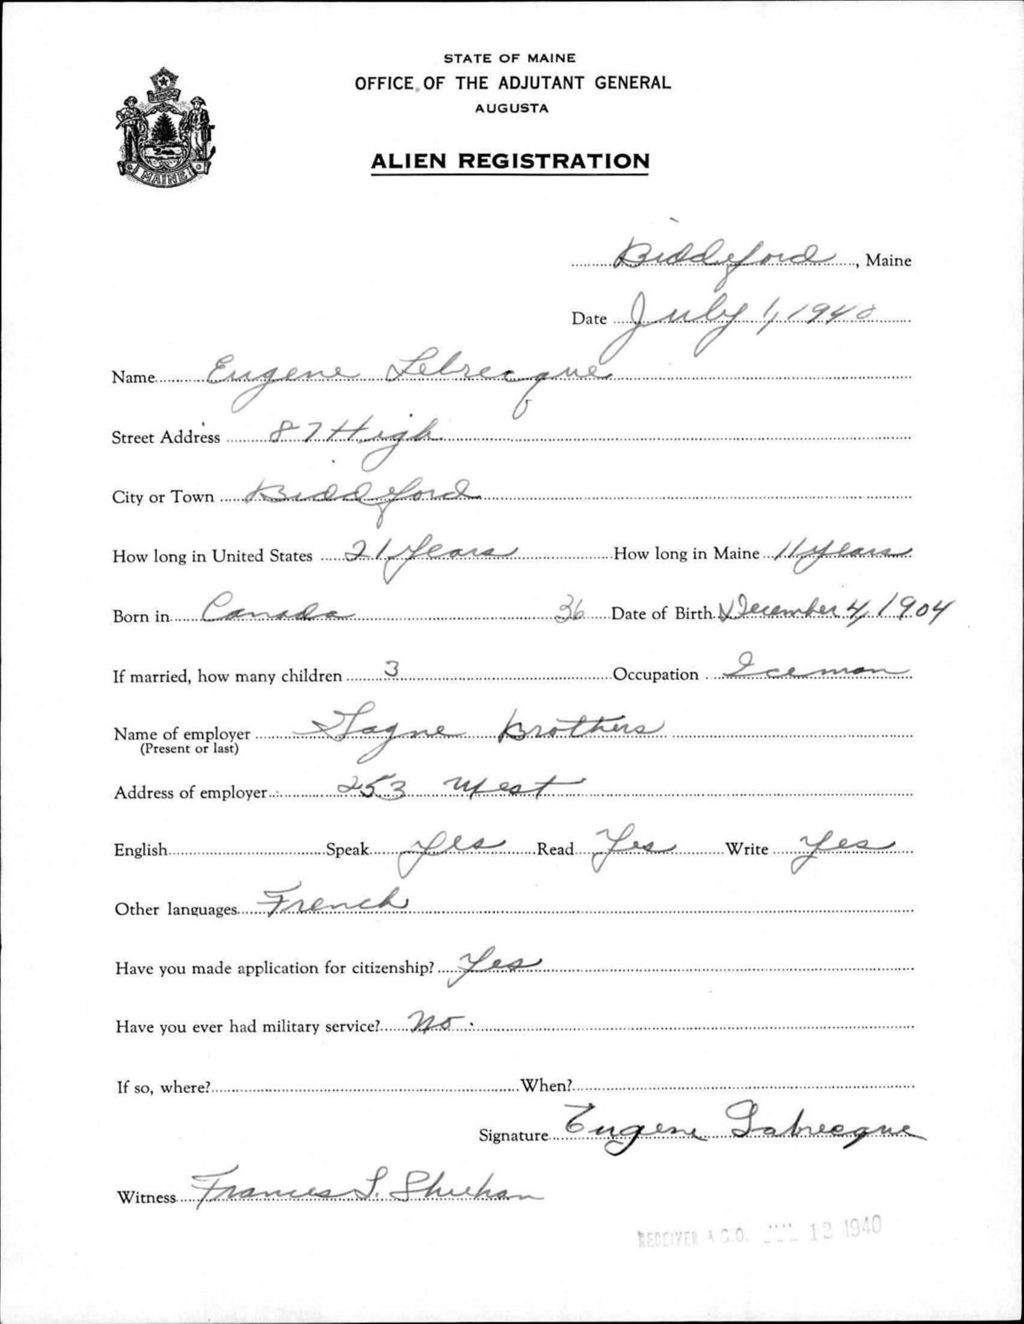 STATE OF MAINE
OFFICE OF THE ADJUTANT GENERAL
AUGUSTA
ALIEN REGISTRATION
MAINE
Biddeford, Maine
Date July 1, 1940
Name Eugene Lebrecque
Street Address 87 High
City or Town Biddeford
How long in United States 21 years How long in Maine 11 years
Born in Canada 36 Date of Birth December 4, 1904
If married, how many children 3 Occupation Iceman
Name of employer Gagne Brothers
(Present or last)
Address of employer 253 West
English Speak Yes Read Yes Write Yes
Other languages French
Have you made application for citizenship? Yes
Have you ever had military service? No.
If so, where? When?
Signature Eugene Labrecque
Witness Frances L. Sheehan
RECEIVED A.G.O. JUL 12 1940